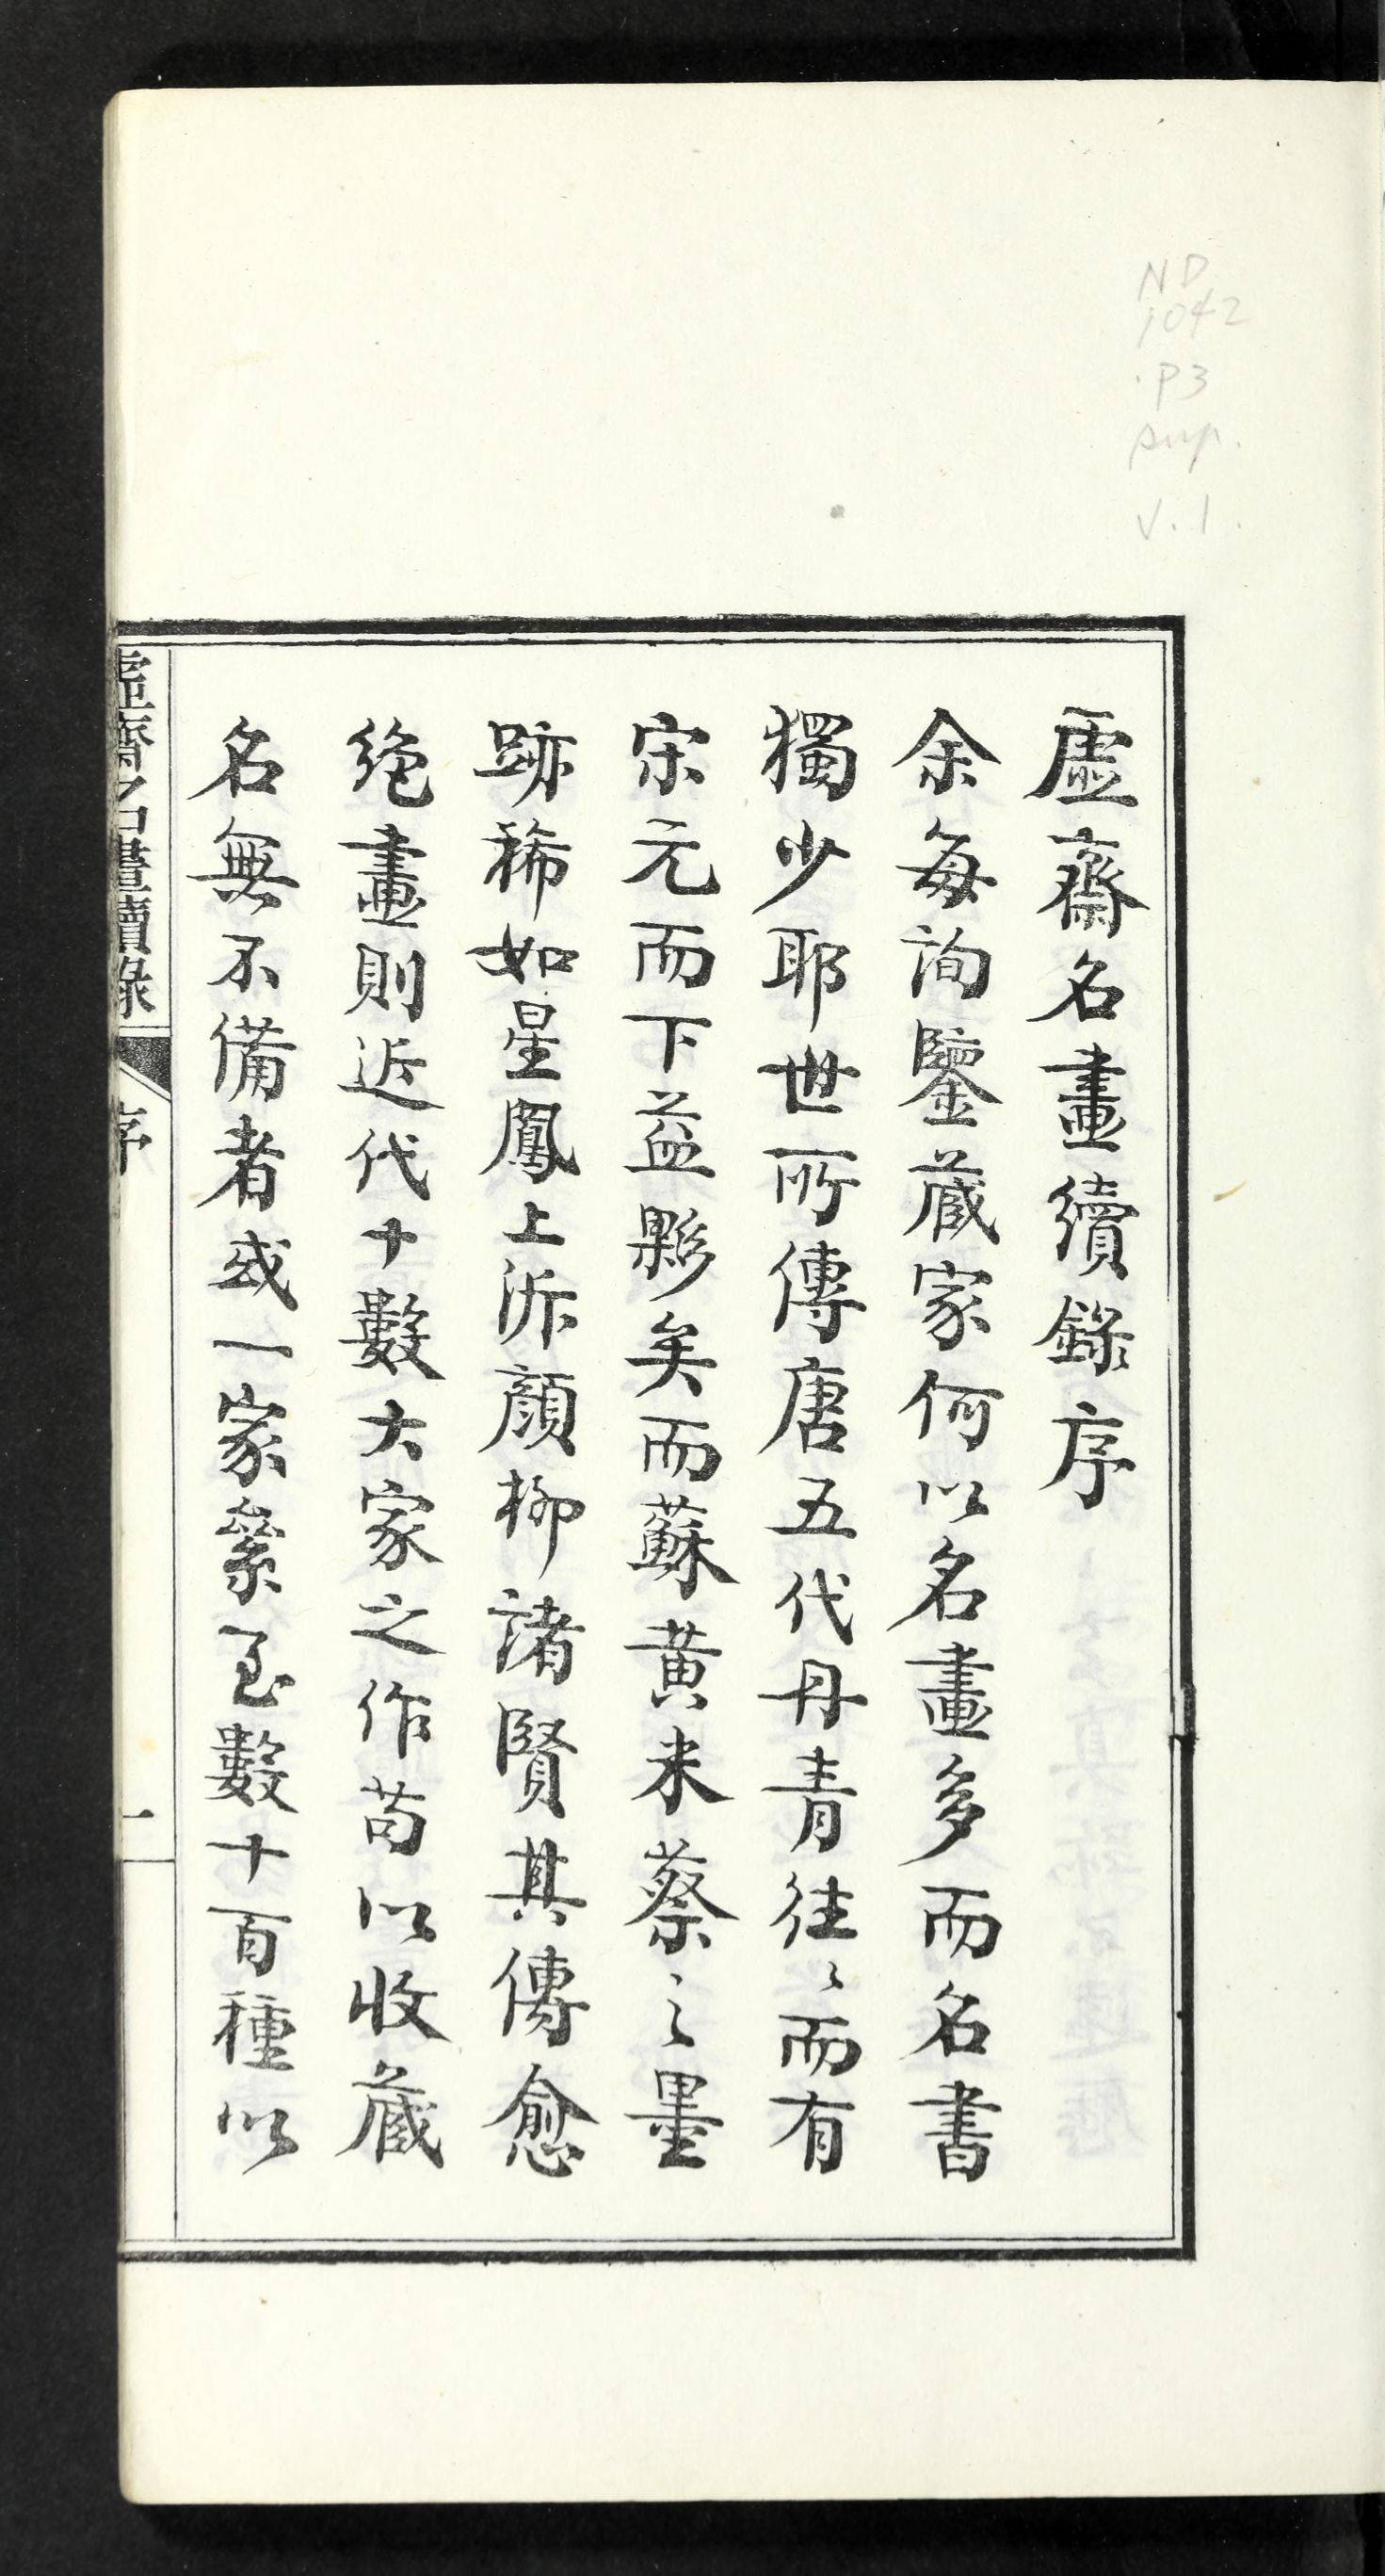 虛齋名畫續錄序
余每詢鑒藏家何以名畫多而名書
獨少耶世所傳唐五代丹青往〻而有
宋元而下益夥矣而蘇黃米蔡之墨
跡稀如星鳳上泝顏柳諸賢其傳愈
絕畫則近代十數大家之作苟以收藏
名無不備者或一家絫至數十百種以
虛齋名畫續錄
序
一
ND
1042
.P3
sup.
v.1.